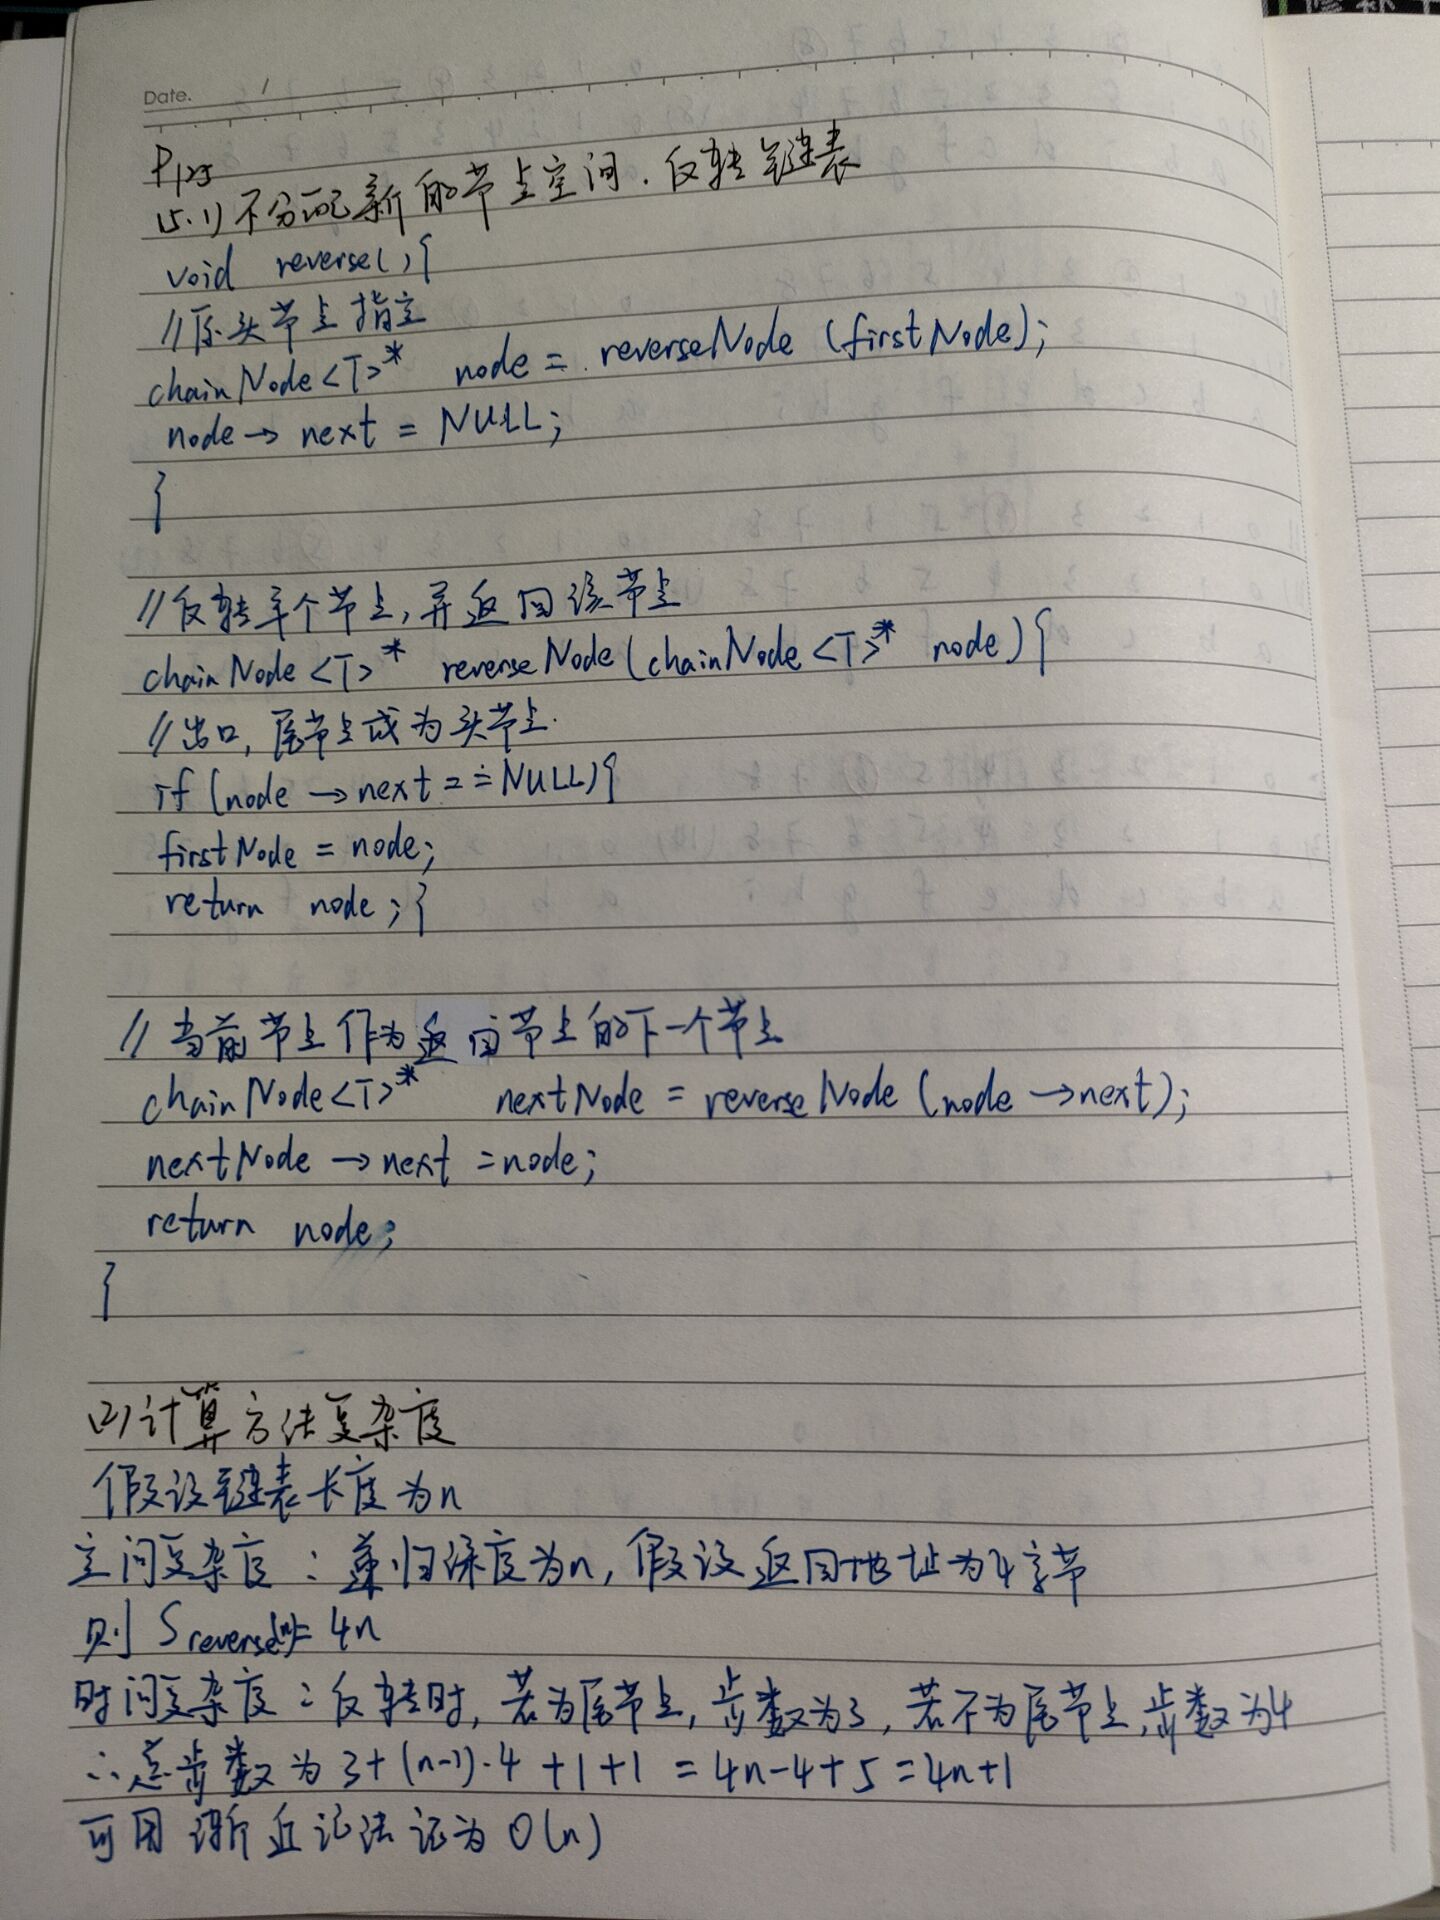 Date. /
P125
15.1) 不分配新的节点空间.反转链表
void reverse(){
//原头节点指空
chainNode<T>* node = reverseNode (firstNode);
node→next = NULL;
}
//反转单个节点,并返回该节点
chainNode<T>* reverseNode(chainNode<T>* node){
//出口,尾节点成为头节点.
if (node→next==NULL){
firstNode = node;
return node;}
//当前节点作为返回节点的下一个节点
chainNode<T>* nextNode = reverseNode (node→next);
nextNode→next = node;
return node;
}
(2)计算方法复杂度
假设链表长度为n
空间复杂度:递归深度为n,假设返回地址为4字节
则 Sreverse(n)= 4n
时间复杂度:反转时,若为尾节点,步数为3,若不为尾节点,步数为4
∴总步数为 3+(n-1)·4+1+1 = 4n-4+5 = 4n+1
可用渐近记法记为 O(n)